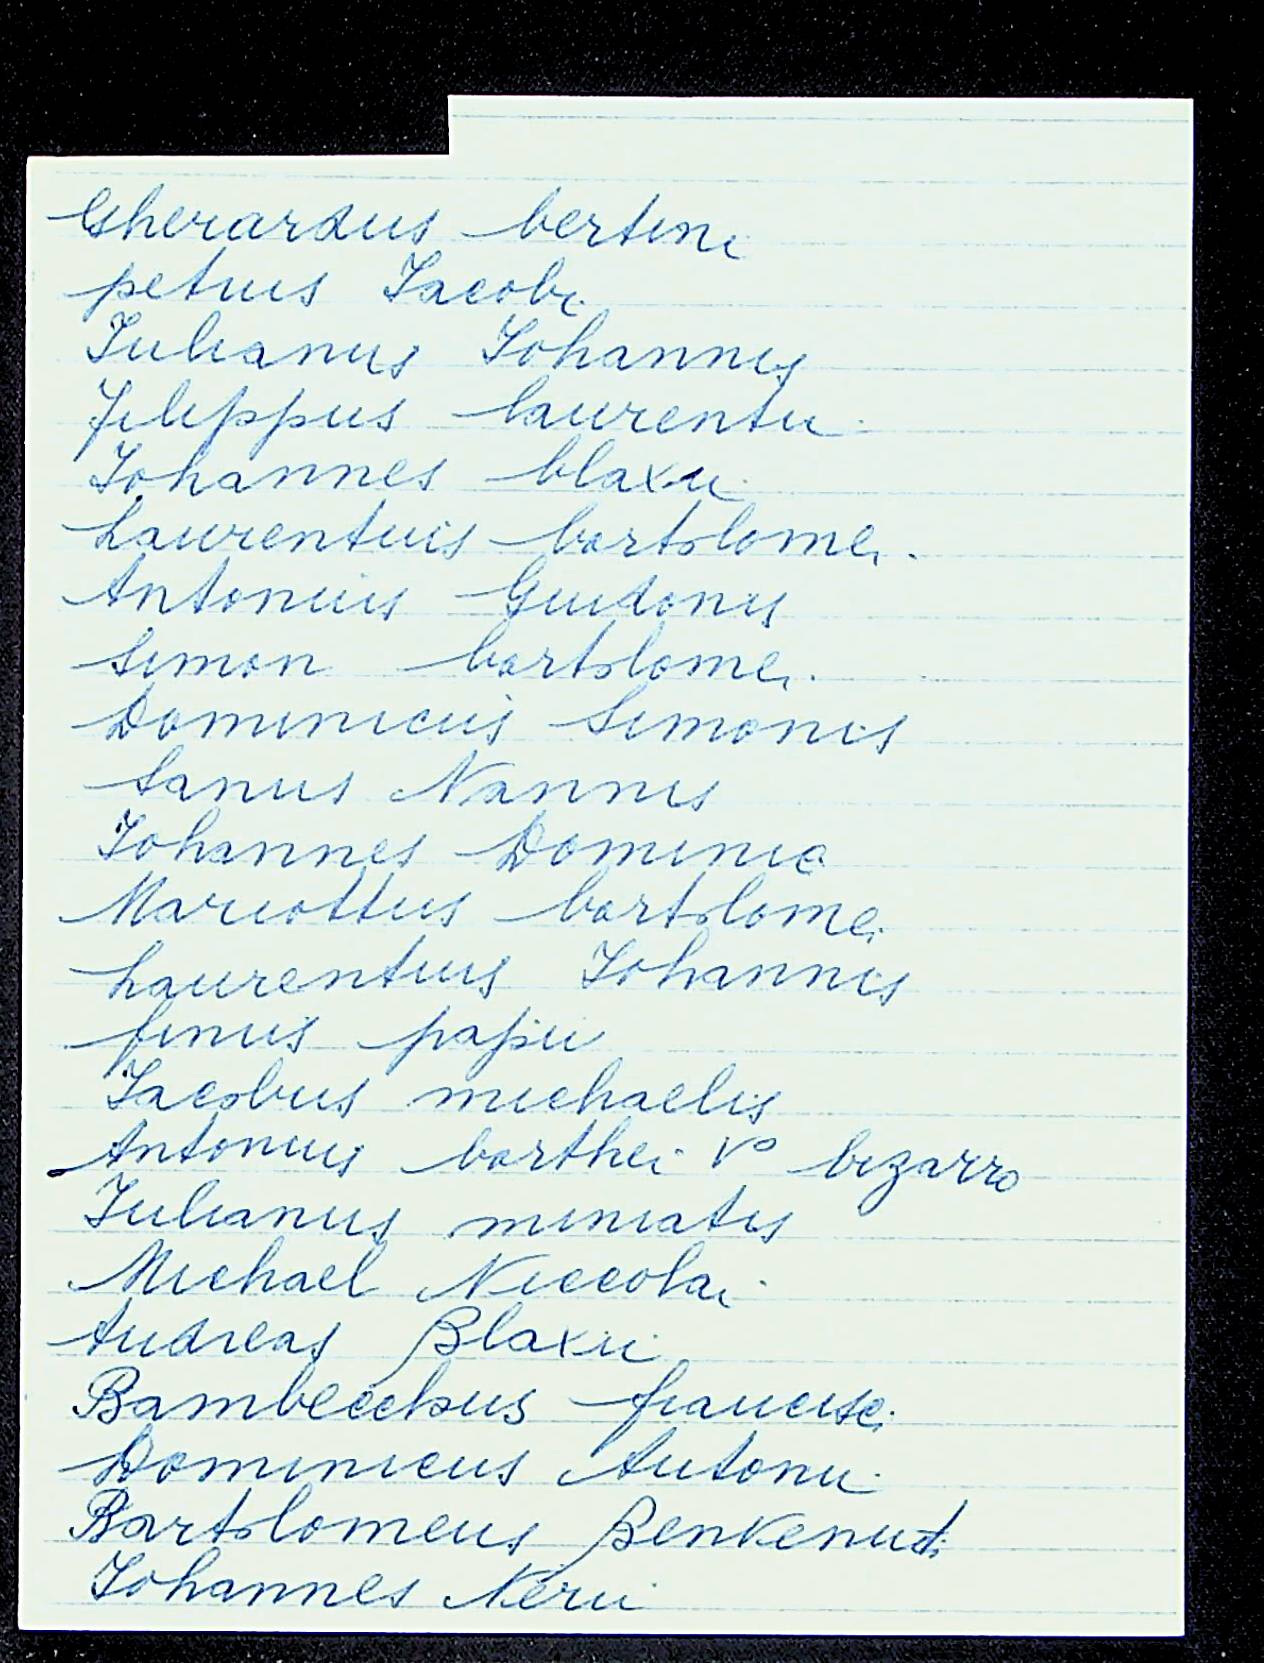 Gherardus bertini
petrus Iacobi
Iulianus Iohannis
filippus laurentii
Iohannes blaxii
Laurentius bartolomei.
Antonius Guidonis
Simon bartolomei.
Dominicus Simonis
Sanus Nannis
Iohannes Dominici
Mariottus bartolomei
Laurentius Iohannis
finus papii
Iacobus michaelis
Antonius barthei vo bizarro
Iulianus miniatis
Michael Niccolai
Andreas Blaxii
Bambecchus francisci
Dominicus Antonii
Bartolomeus Benvenuti
Iohannes Nerii